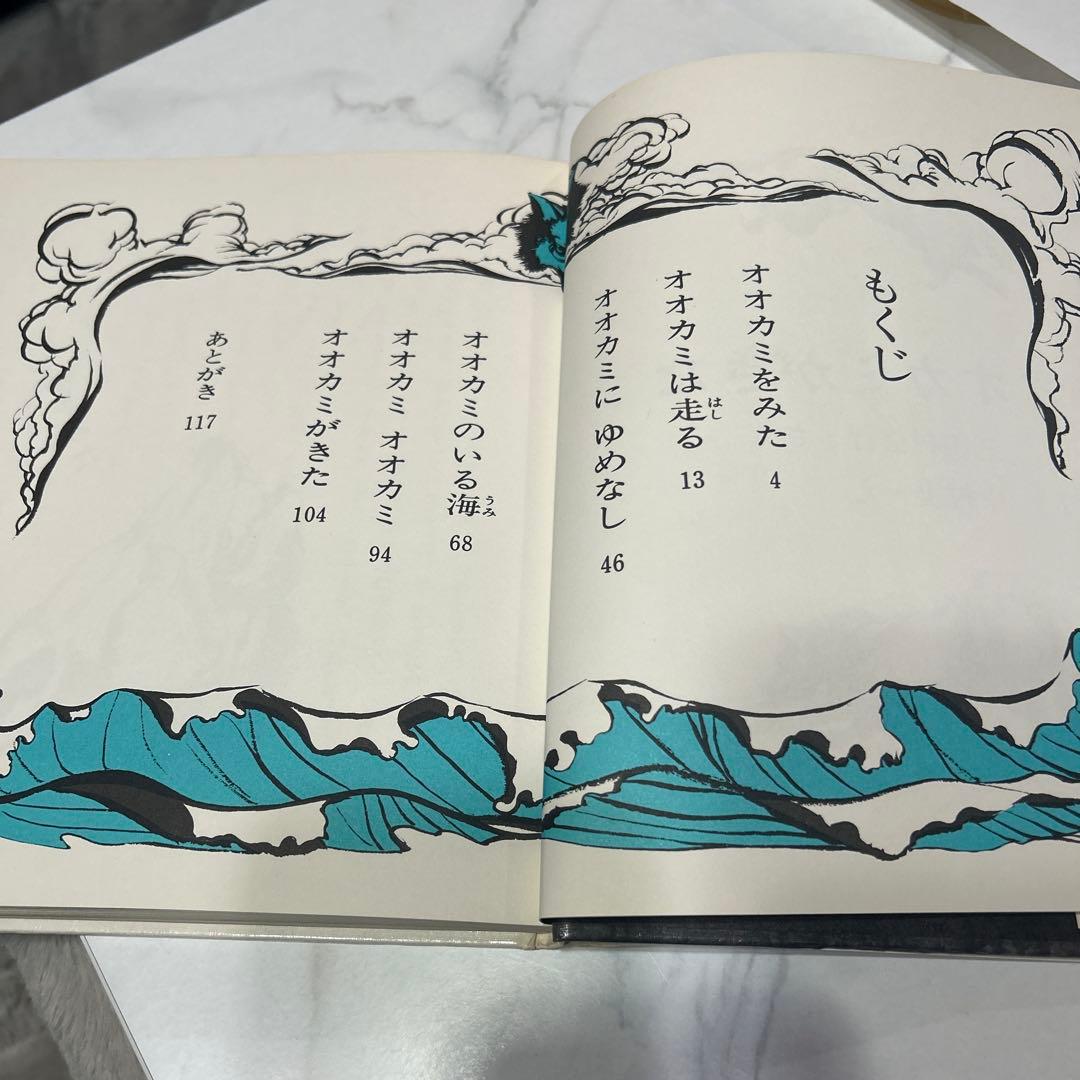 もくじ
オオカミをみた 4
オオカミは走る 13
はし
オオカミに ゆめなし 46
オオカミのいる海 68
うみ
オオカミ オオカミ 94
オオカミがきた 104
あとがき 117